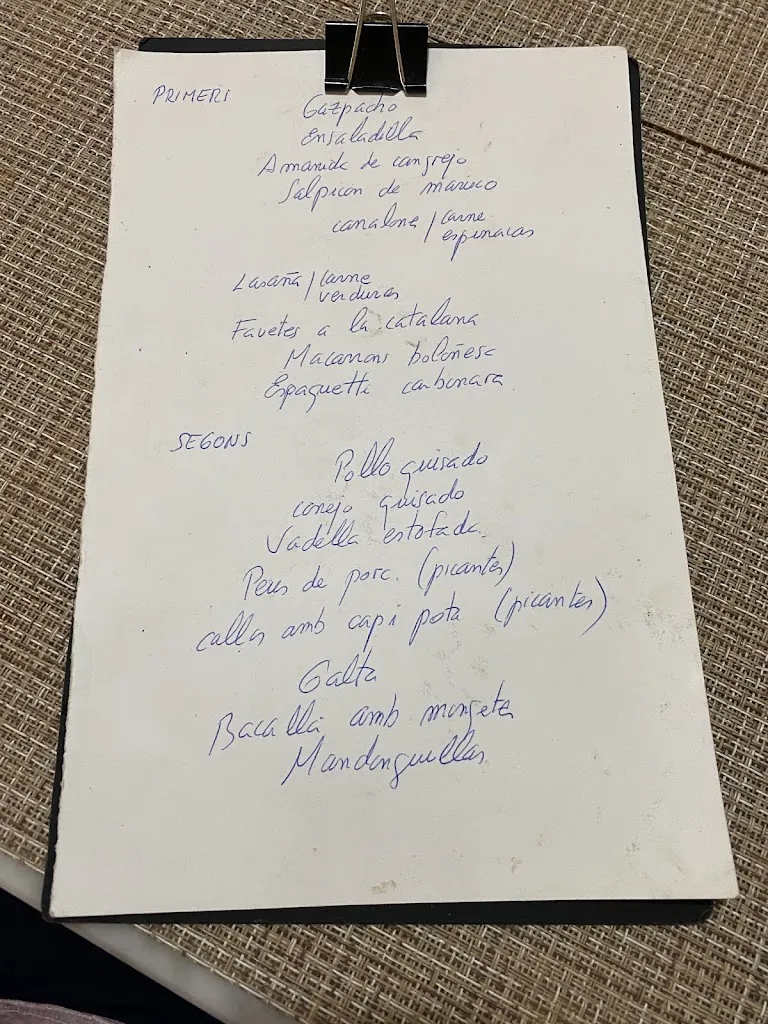 PRIMERS
Gazpacho
Ensaladilla
Amanida de cangrejo
Salpicon de marisco
canalons / carne
espinacas
Lasaña / carne
verduras
Favetes a la catalana
Macarrons boloñesa
Espaguetti carbonara
SEGONS
Pollo guisado
conejo guisado
Vadella estofada
Peus de porc. (picantes)
callos amb cap i pota (picantes)
Galta
Bacallà amb mongetes
Mandonguillas